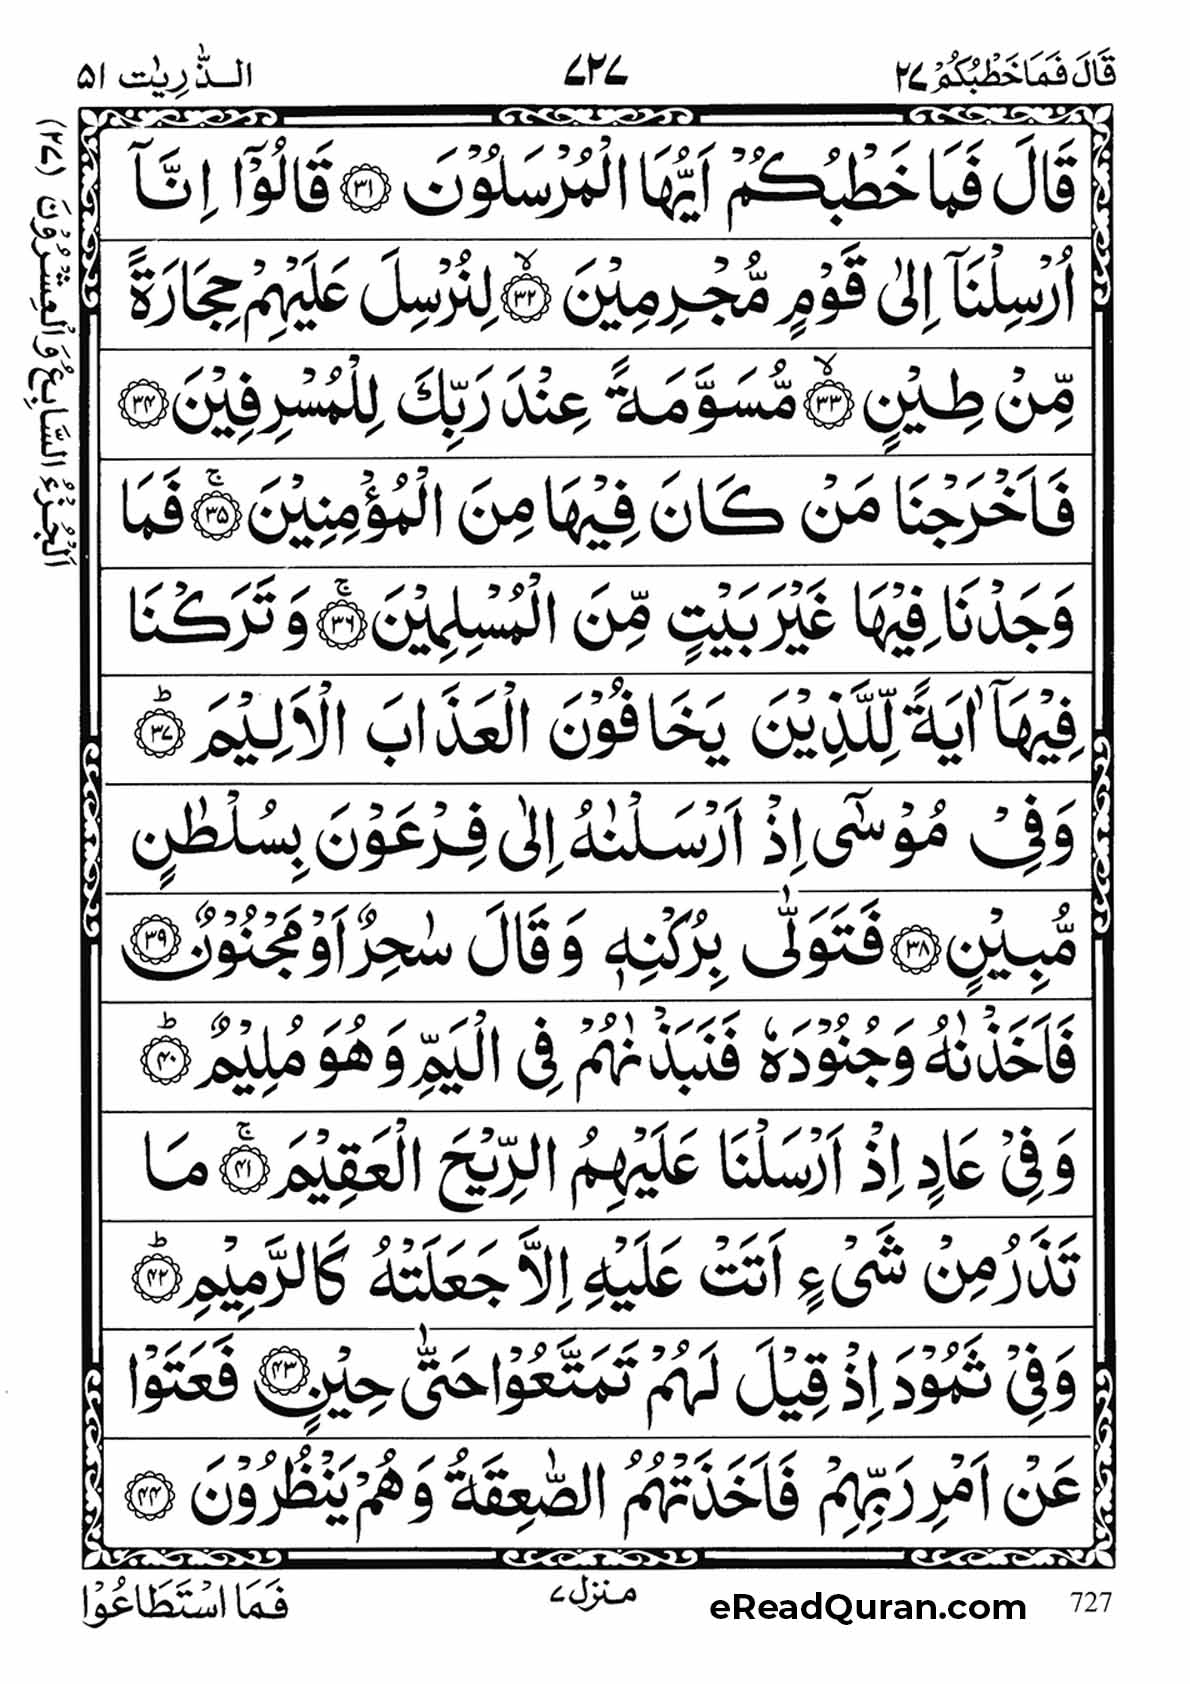 قَالَ فَمَا خَطْبُكُمْ ٢٧ ٧٢٧ الذّٰرِيٰت ٥١
قَالَ فَمَا خَطْبُكُمْ اَيُّهَا الْمُرْسَلُوْنَ ﴿٣١﴾ قَالُوْٓا اِنَّآ
اُرْسِلْنَآ اِلٰى قَوْمٍ مُّجْرِمِيْنَ ﴿٣٢﴾ۙ لِنُرْسِلَ عَلَيْهِمْ حِجَارَةً
مِّنْ طِيْنٍ ﴿٣٣﴾ۙ مُّسَوَّمَةً عِنْدَ رَبِّكَ لِلْمُسْرِفِيْنَ ﴿٣٤﴾
فَاَخْرَجْنَا مَنْ كَانَ فِيْهَا مِنَ الْمُؤْمِنِيْنَ ﴿٣٥﴾ۚ فَمَا
وَجَدْنَا فِيْهَا غَيْرَ بَيْتٍ مِّنَ الْمُسْلِمِيْنَ ﴿٣٦﴾ۚ وَتَرَكْنَا
فِيْهَآ اٰيَةً لِّلَّذِيْنَ يَخَافُوْنَ الْعَذَابَ الْاَلِيْمَ ﴿٣٧﴾ؕ
وَفِيْ مُوْسٰٓى اِذْ اَرْسَلْنٰهُ اِلٰى فِرْعَوْنَ بِسُلْطٰنٍ
مُّبِيْنٍ ﴿٣٨﴾ فَتَوَلّٰى بِرُكْنِهٖ وَقَالَ سٰحِرٌ اَوْ مَجْنُوْنٌ ﴿٣٩﴾
فَاَخَذْنٰهُ وَجُنُوْدَهٗ فَنَبَذْنٰهُمْ فِي الْيَمِّ وَهُوَ مُلِيْمٌ ﴿٤٠﴾ؕ
وَفِيْ عَادٍ اِذْ اَرْسَلْنَا عَلَيْهِمُ الرِّيْحَ الْعَقِيْمَ ﴿٤١﴾ۚ مَا
تَذَرُ مِنْ شَيْءٍ اَتَتْ عَلَيْهِ اِلَّا جَعَلَتْهُ كَالرَّمِيْمِ ﴿٤٢﴾ؕ
وَفِيْ ثَمُوْدَ اِذْ قِيْلَ لَهُمْ تَمَتَّعُوْا حَتّٰى حِيْنٍ ﴿٤٣﴾ فَعَتَوْا
عَنْ اَمْرِ رَبِّهِمْ فَاَخَذَتْهُمُ الصّٰعِقَةُ وَهُمْ يَنْظُرُوْنَ ﴿٤٤﴾
اَلْجُزْءُ السَّابِعُ وَالْعِشْرُوْنَ (٢٧)
727 eReadQuran.com منزل ٧ فَمَا اسْتَطَاعُوْا